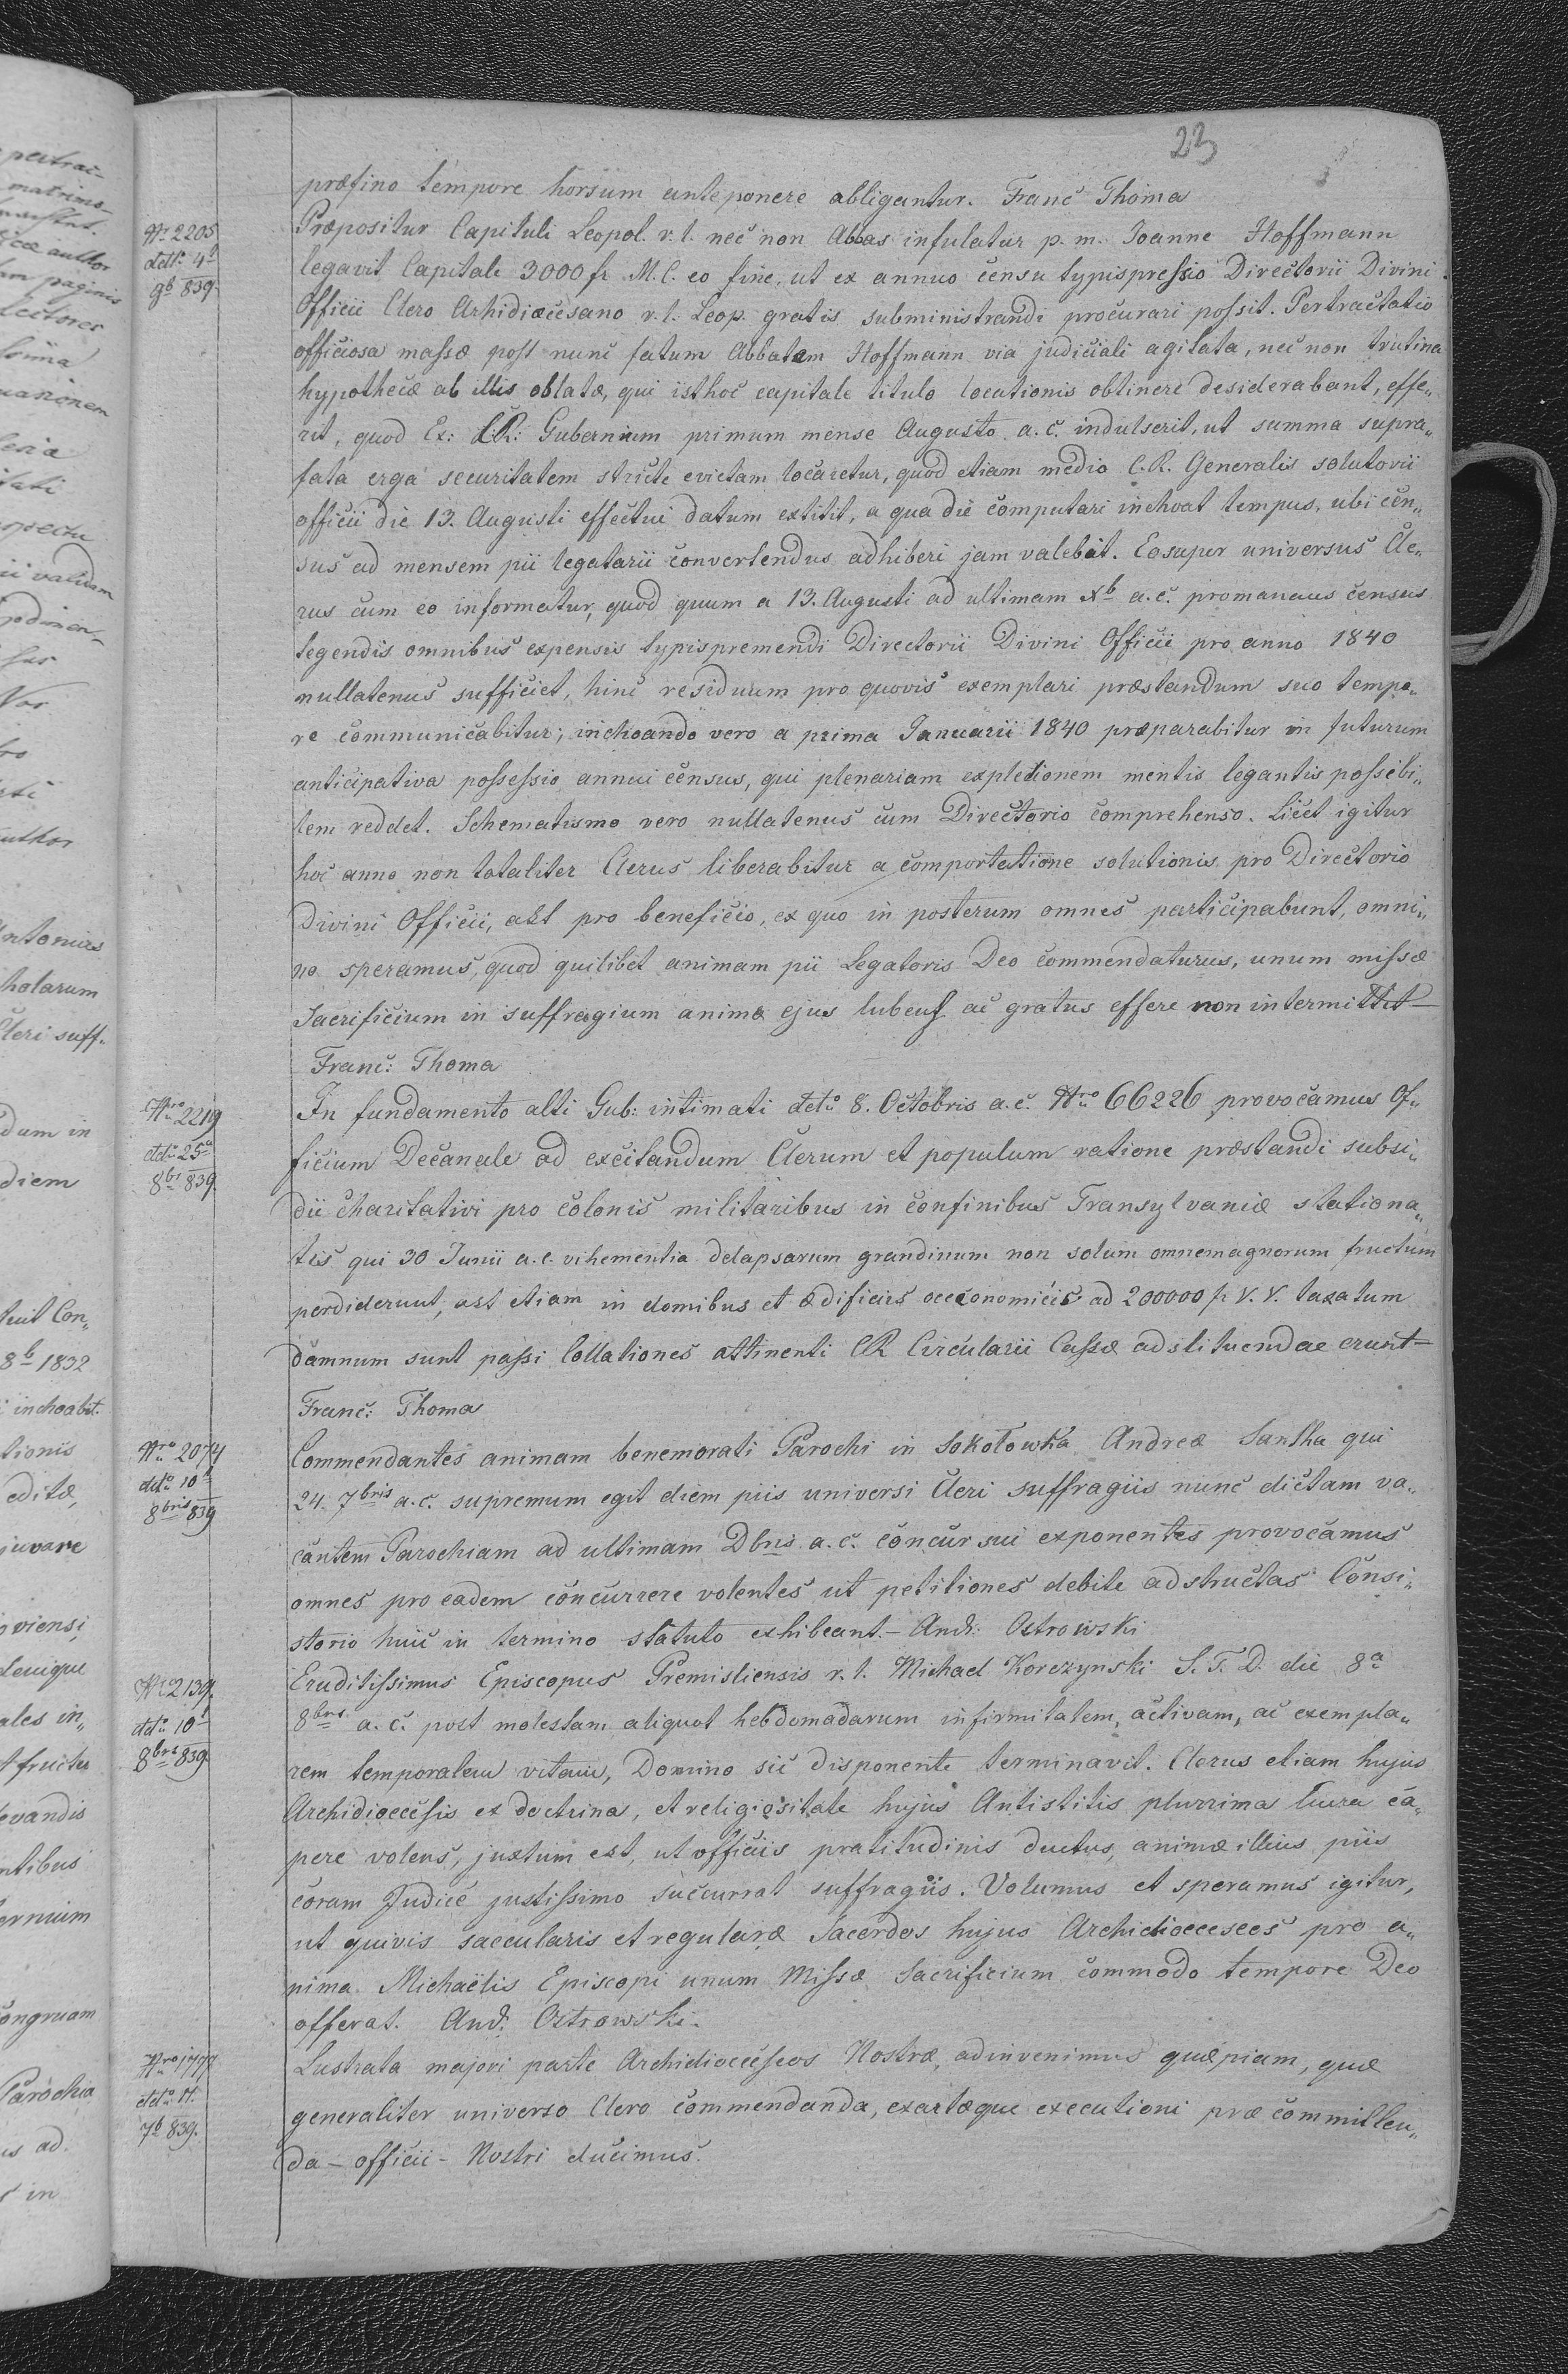 23
præfino tempore horsum anteponere obligantur. Franc Thoma
Nr 2205
ddto 4t
9b 839.
Præpositur Capituli Leopol. r. l. nec non Abbas infulatur p. m. Joanne Hoffmann
legavit Capitale 3000 fr M. C. eo fine, ut ex annuo censu typispressio Directorii Divini
Officii Clero Arhidiæcesano r. l. Leop. gratis subministrandi procurari possit. Pertractatio
officiosa massæ post nunc fatum Abbatem Hoffmann via judiciali agitata, nec non trutina
hypothecæ ab illis oblatæ, qui isthoc capitale titulo locationis obtinere desiderabant, effe„
rit, quod Ex: C.R: Gubernium primum mense Augusto a. c. indulserit, ut summa supra„
fata erga securitatem stricte evictam locaretur, quod etiam medio C. R. Generalis solutorii
officii die 13. Augusti effectui datum extitit, a qua die computari inchoat tempus, ubi cen„
sus ad mensem pii legatarii convertendus adhiberi jam valebat. Eosuper universus Cle„
rus cum eo informatur, quod quum a 13. Augusti ad ultimam Xb a. c. promanaus census
tegendis omnibus expensis typispremendi Directorii Divini Officii pro anno 1840
nullatenus sufficiet, hinc residuum pro quovis exemplari præstandum suo tempo„
re communicabitur; inchoando vero a prima Januarii 1840 præparabitur in futurum
anticipativa possessio annui census, qui plenariam expletionem mentis legantis possebi„
lem reddet. Schematismo vero nullatenus cum Directorio comprehenso. Licet igitur
hoc anno non totaliter Clerus liberabitur a comportatione solutionis pro Directorio
Divini Officii, ast pro beneficio, ex quo in posterum omnes participabunt, omni„
no speramus, quod quilibet animam pii Legatoris Deo commendaturus, unum missæ
Sacrificium in suffragium animæ ejus lubens ac gratus effere non intermittet—
Franc: Thoma
Nro 2219
ddto 25a
8br 839.
In fundamento alti Gub: intimati ddto 8. Octobris a. c. Nro 66226 provocamus Of„
ficium Decanale ad excitandum Clerum et populum ratione præstandi subsi„
dii charitativi pro colonis militaribus in confinibus Transylvaniæ stationa„
tis qui 30 Junii a. c. vihementia delapsarum grandinum non solum omnemagnorum fructum
perdiderunt, ast etiam in domibus et ædificiis oeconomicis ad 200000 fr V. V. taxatum
damnum sunt passi Collationes attinenti CR Circularii Cassæ adstituendae erunt—
Franc: Thoma
Nro 2074
ddto 10t
8bris 839
Commendantes animam benemorati Parochi in Sokołowka Andreæ Santha qui
24. 7bris a. c. supremum egit diem piis universi Cleri suffragiis nunc dictam va„
cantem Parochiam ad ultimam Dbris a. c. concursui exponentes provocamus
omnes pro eadem concurrere volentes ut petitiones debite adstructas Consi„
storio huic in termino statuto exhibeant.— And: Ostrowski
Nr 2139.
ddto 10t
8bris 839
Eruditissimus Episcopus Premisliensis r. l. Michael Korczynski S. T. D. die 8a
8bris a. c. post molestam aliquot hebdomadarum infirmitatem, activam, ac exempla„
rem temporalem vitam, Domino sic disponente terminavit. Clerus etiam hujus
Archidioecesis ex doctrina, et religiositate hujus Antistitis plurrima lucra ca„
pere volens, justum est, ut officiis pratitudinis ductus, animæ illius piis
coram Judice justissimo succurrat suffragiis. Volumus et speramus igitur,
ut quivis saecularis et regularæ Sacerdos hujus Archidioeceseos pro a„
nima Michaëlis Episcopi unum Missæ Sacrificium commodo tempore Deo
offerat. And: Ostrowski.
Nro 1777
ddto 11.
7b 839.
Lustrata majori parte Archidiœceseos Nostræ, adinvenimus quæpiam, quæ
generaliter universo Clero commendanda, exactæque executioni præ committen„
da – officii – Nostri ducimus.